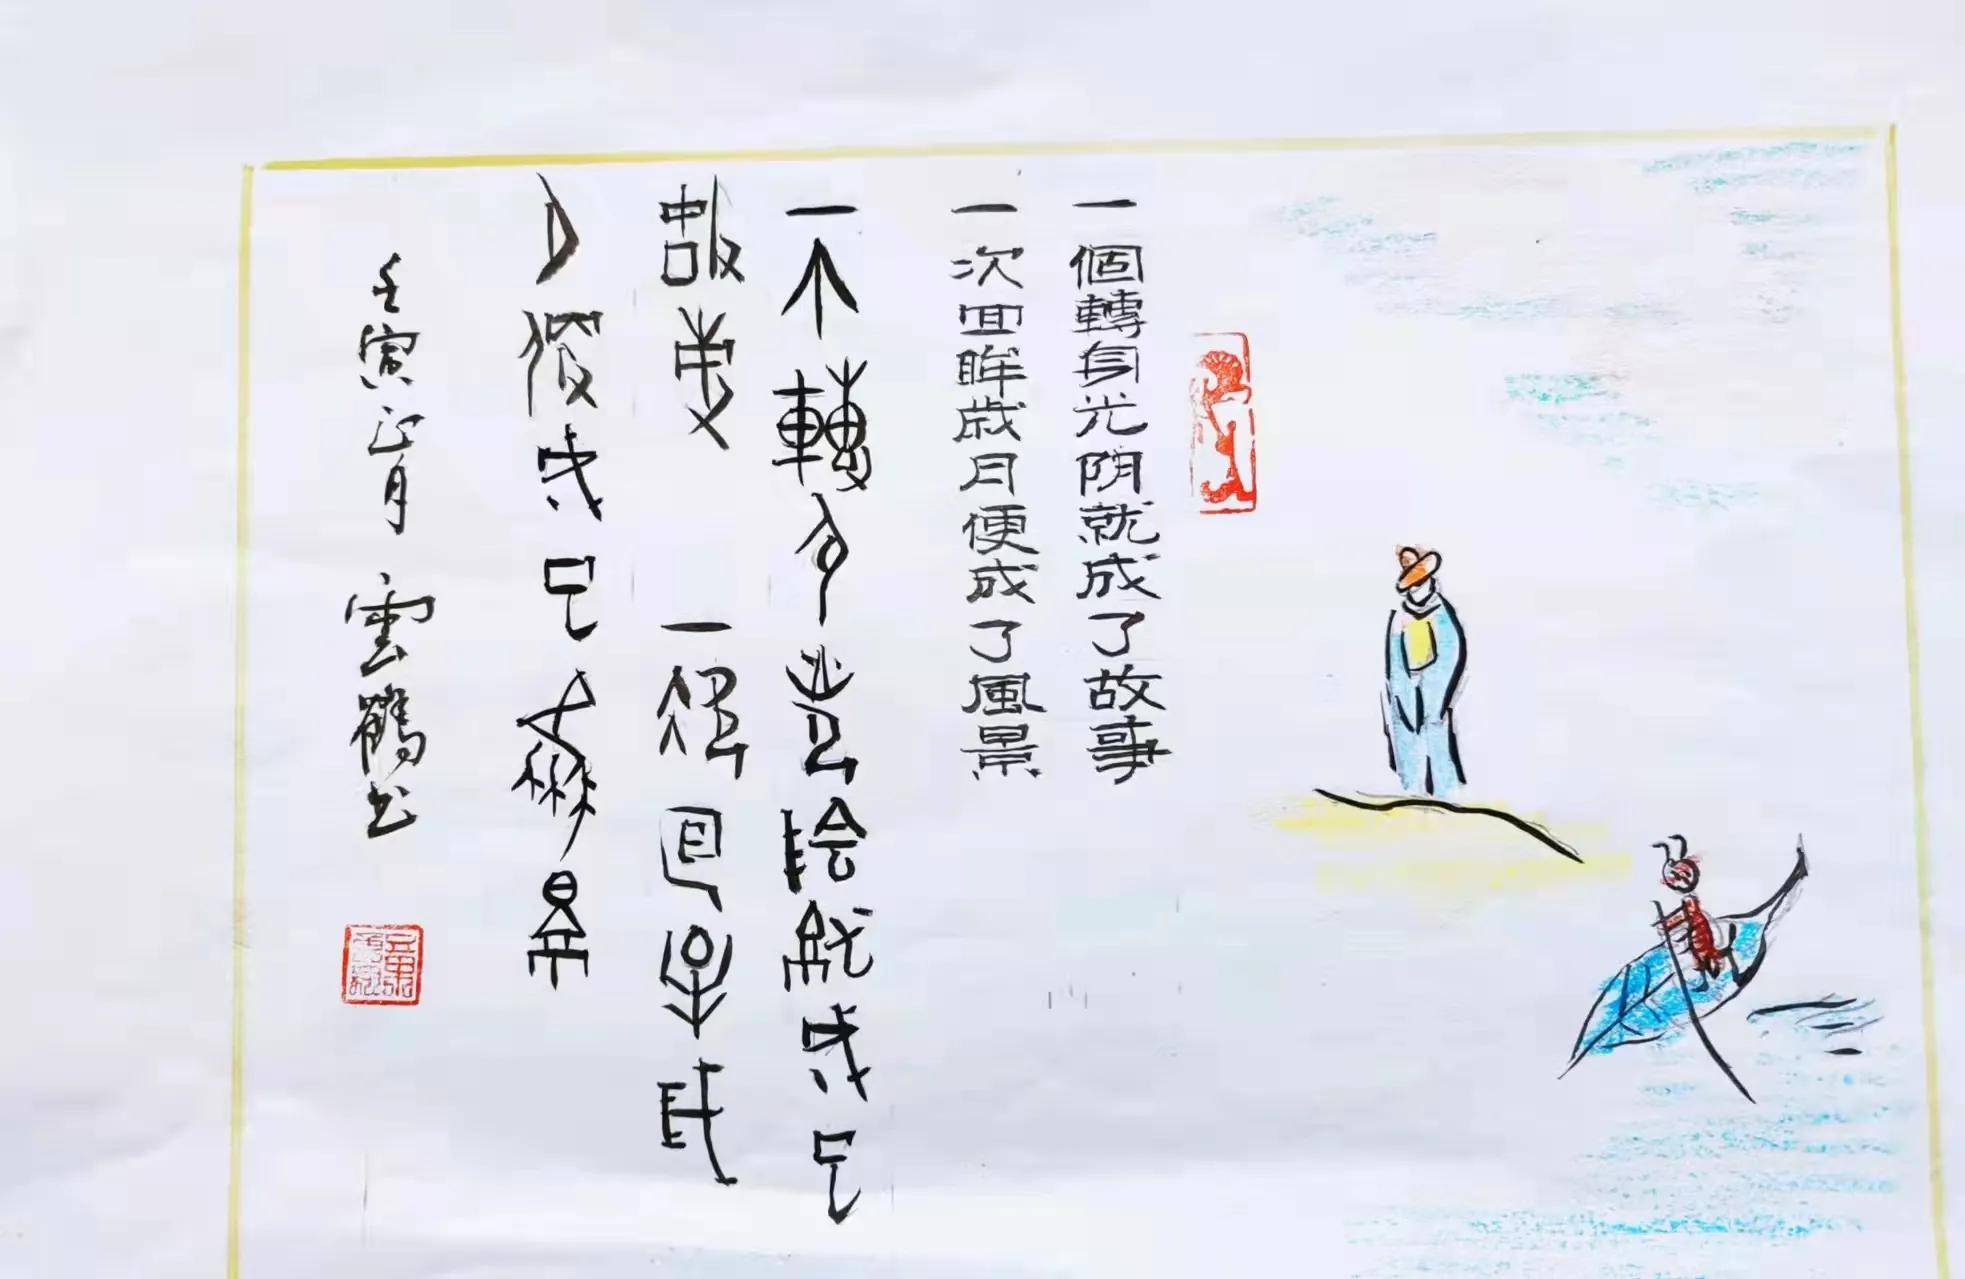 一個轉身光阴就成了故事
一次回眸歲月便成了風景
一个轉身光陰就成了
故事 一次回眸歲
月便成了風景
壬寅正月 雲鶴书